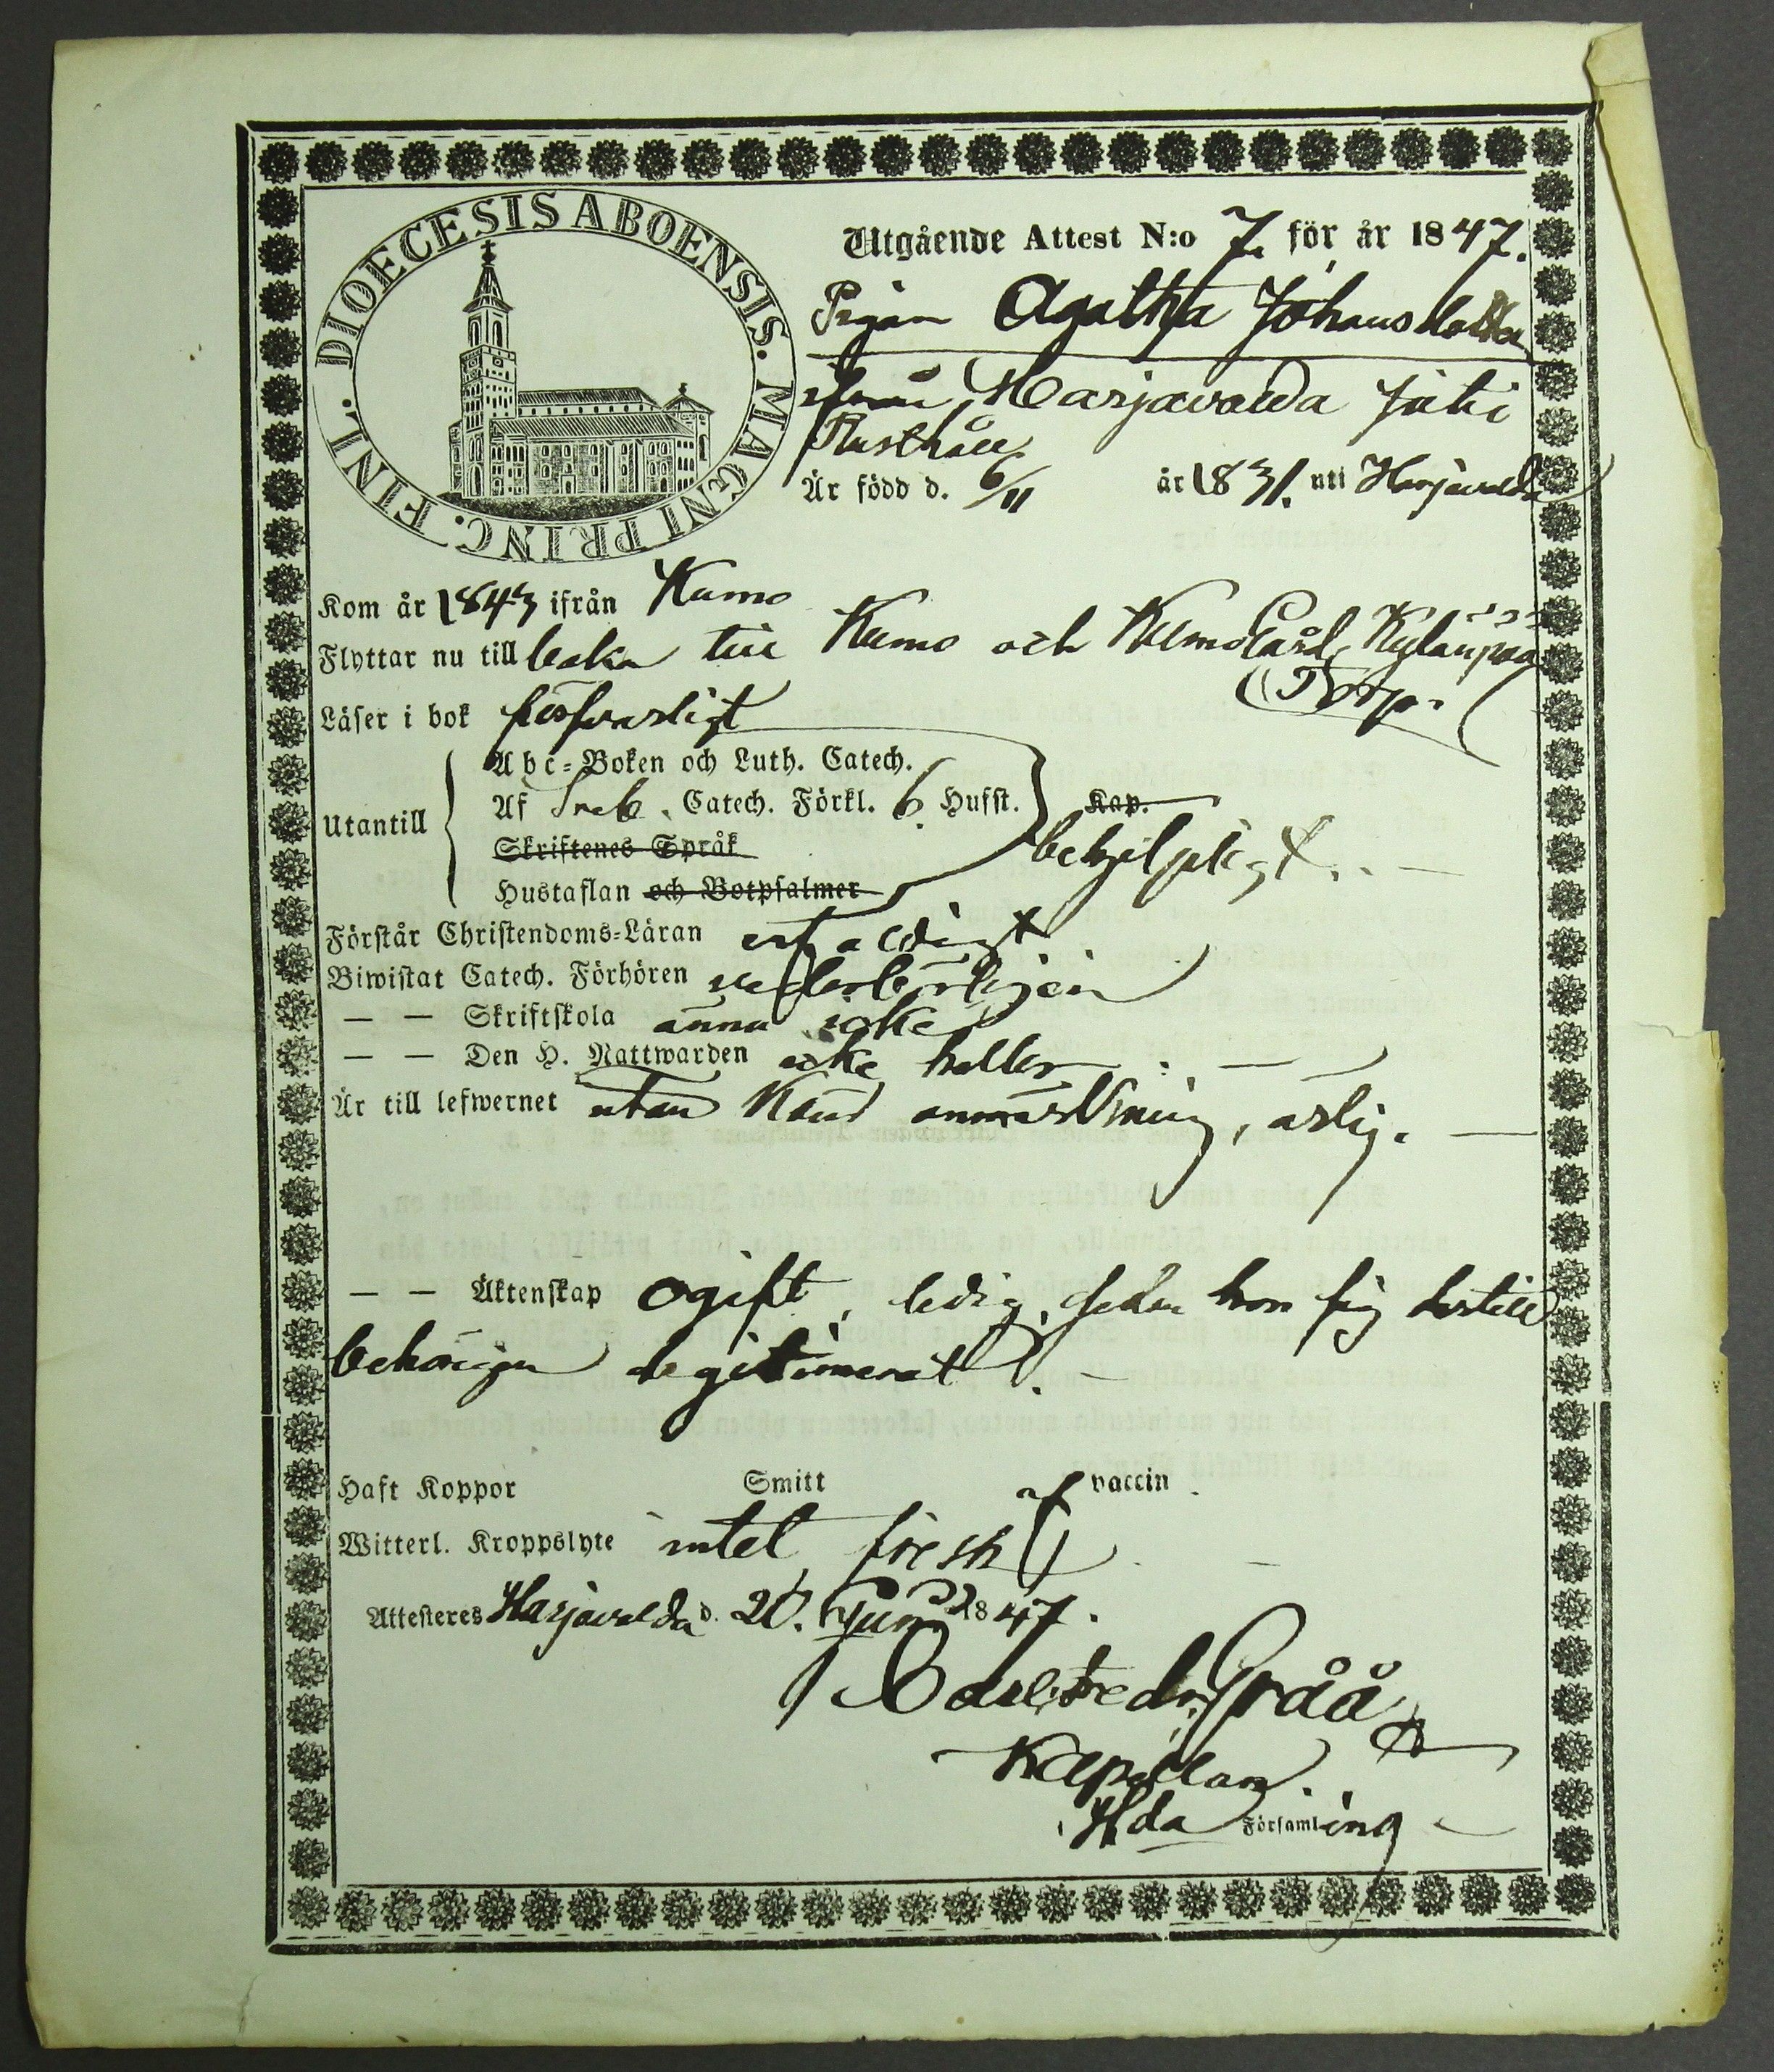 DIOECESIS ABOENSIS. MAGNI PRINC. FINL.
Utgående Attest N:o 7. för år 1847.
Pigan Agatha Johansdotter
ifrån Harjavalda
Rusthåll
Är född d. 6/11 år 1831. uti Harjavalda
Kom år 1843 ifrån Kumo
Flyttar nu till baka till Kumo och Kumogård, Kyläinpää
Torp.
Läser i bok försvarligt
Abc-Boken och Luth. Catech.
Utantill Af Sveb. Catech. Förkl. 6. Hufst. Kap.
behjelpligt.
Skriftenes Språk
Hustaflan och Botpsalmer
Förstår Christendoms-Läran enfaldigt
Biwistat Catech. Förhören vederbörligen
— — Skriftskola ännu icke
— — Den H. Nattwarden icke heller
Är till lefwernet utan känd anmärkning, ärlig. —
— — Äktenskap ogift, ledig, sedan hon sig dertill
behörigen legitimerat. —
Haft Koppor Smitt af vaccin
Witterl. Kroppslyte intet, frisk
Attesteres Harjavalda d. 20. Juni 1847.
Carl Fredr. Gråå
Kapellan.
Hda Församling